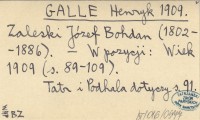 GALLE Henryk 1909.
Zaleski Józef Bohdan (1802-
-1886). — W pozycji: Wiek
1909 (s. 89-109).
Tatr i Podhala dotyczy s. 91.
BZ